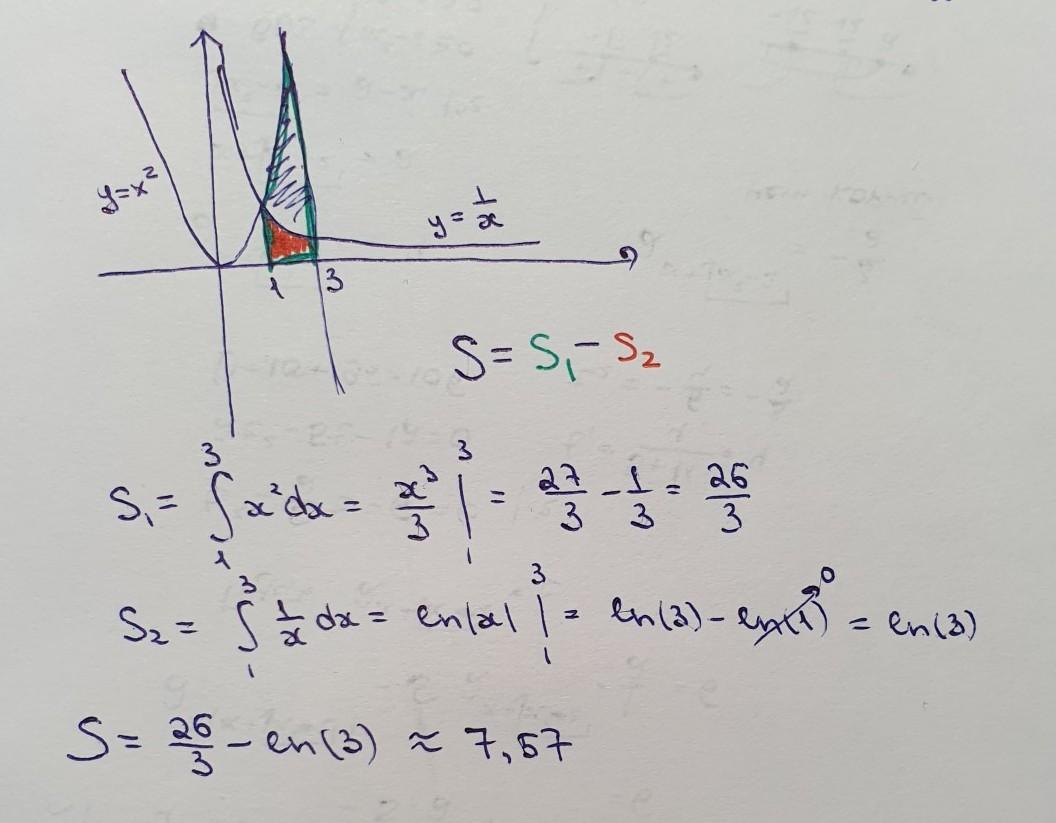 y=x²
y = 1/x
1 3
S = S₁ - S₂
S₁ = ∫₁³ x²dx = x³/3 |₁³ = 27/3 - 1/3 = 26/3
S₂ = ∫₁³ 1/x dx = ln|x| |₁³ = ln(3) - ln(1) 0 = ln(3)
S = 26/3 - ln(3) ≈ 7,57